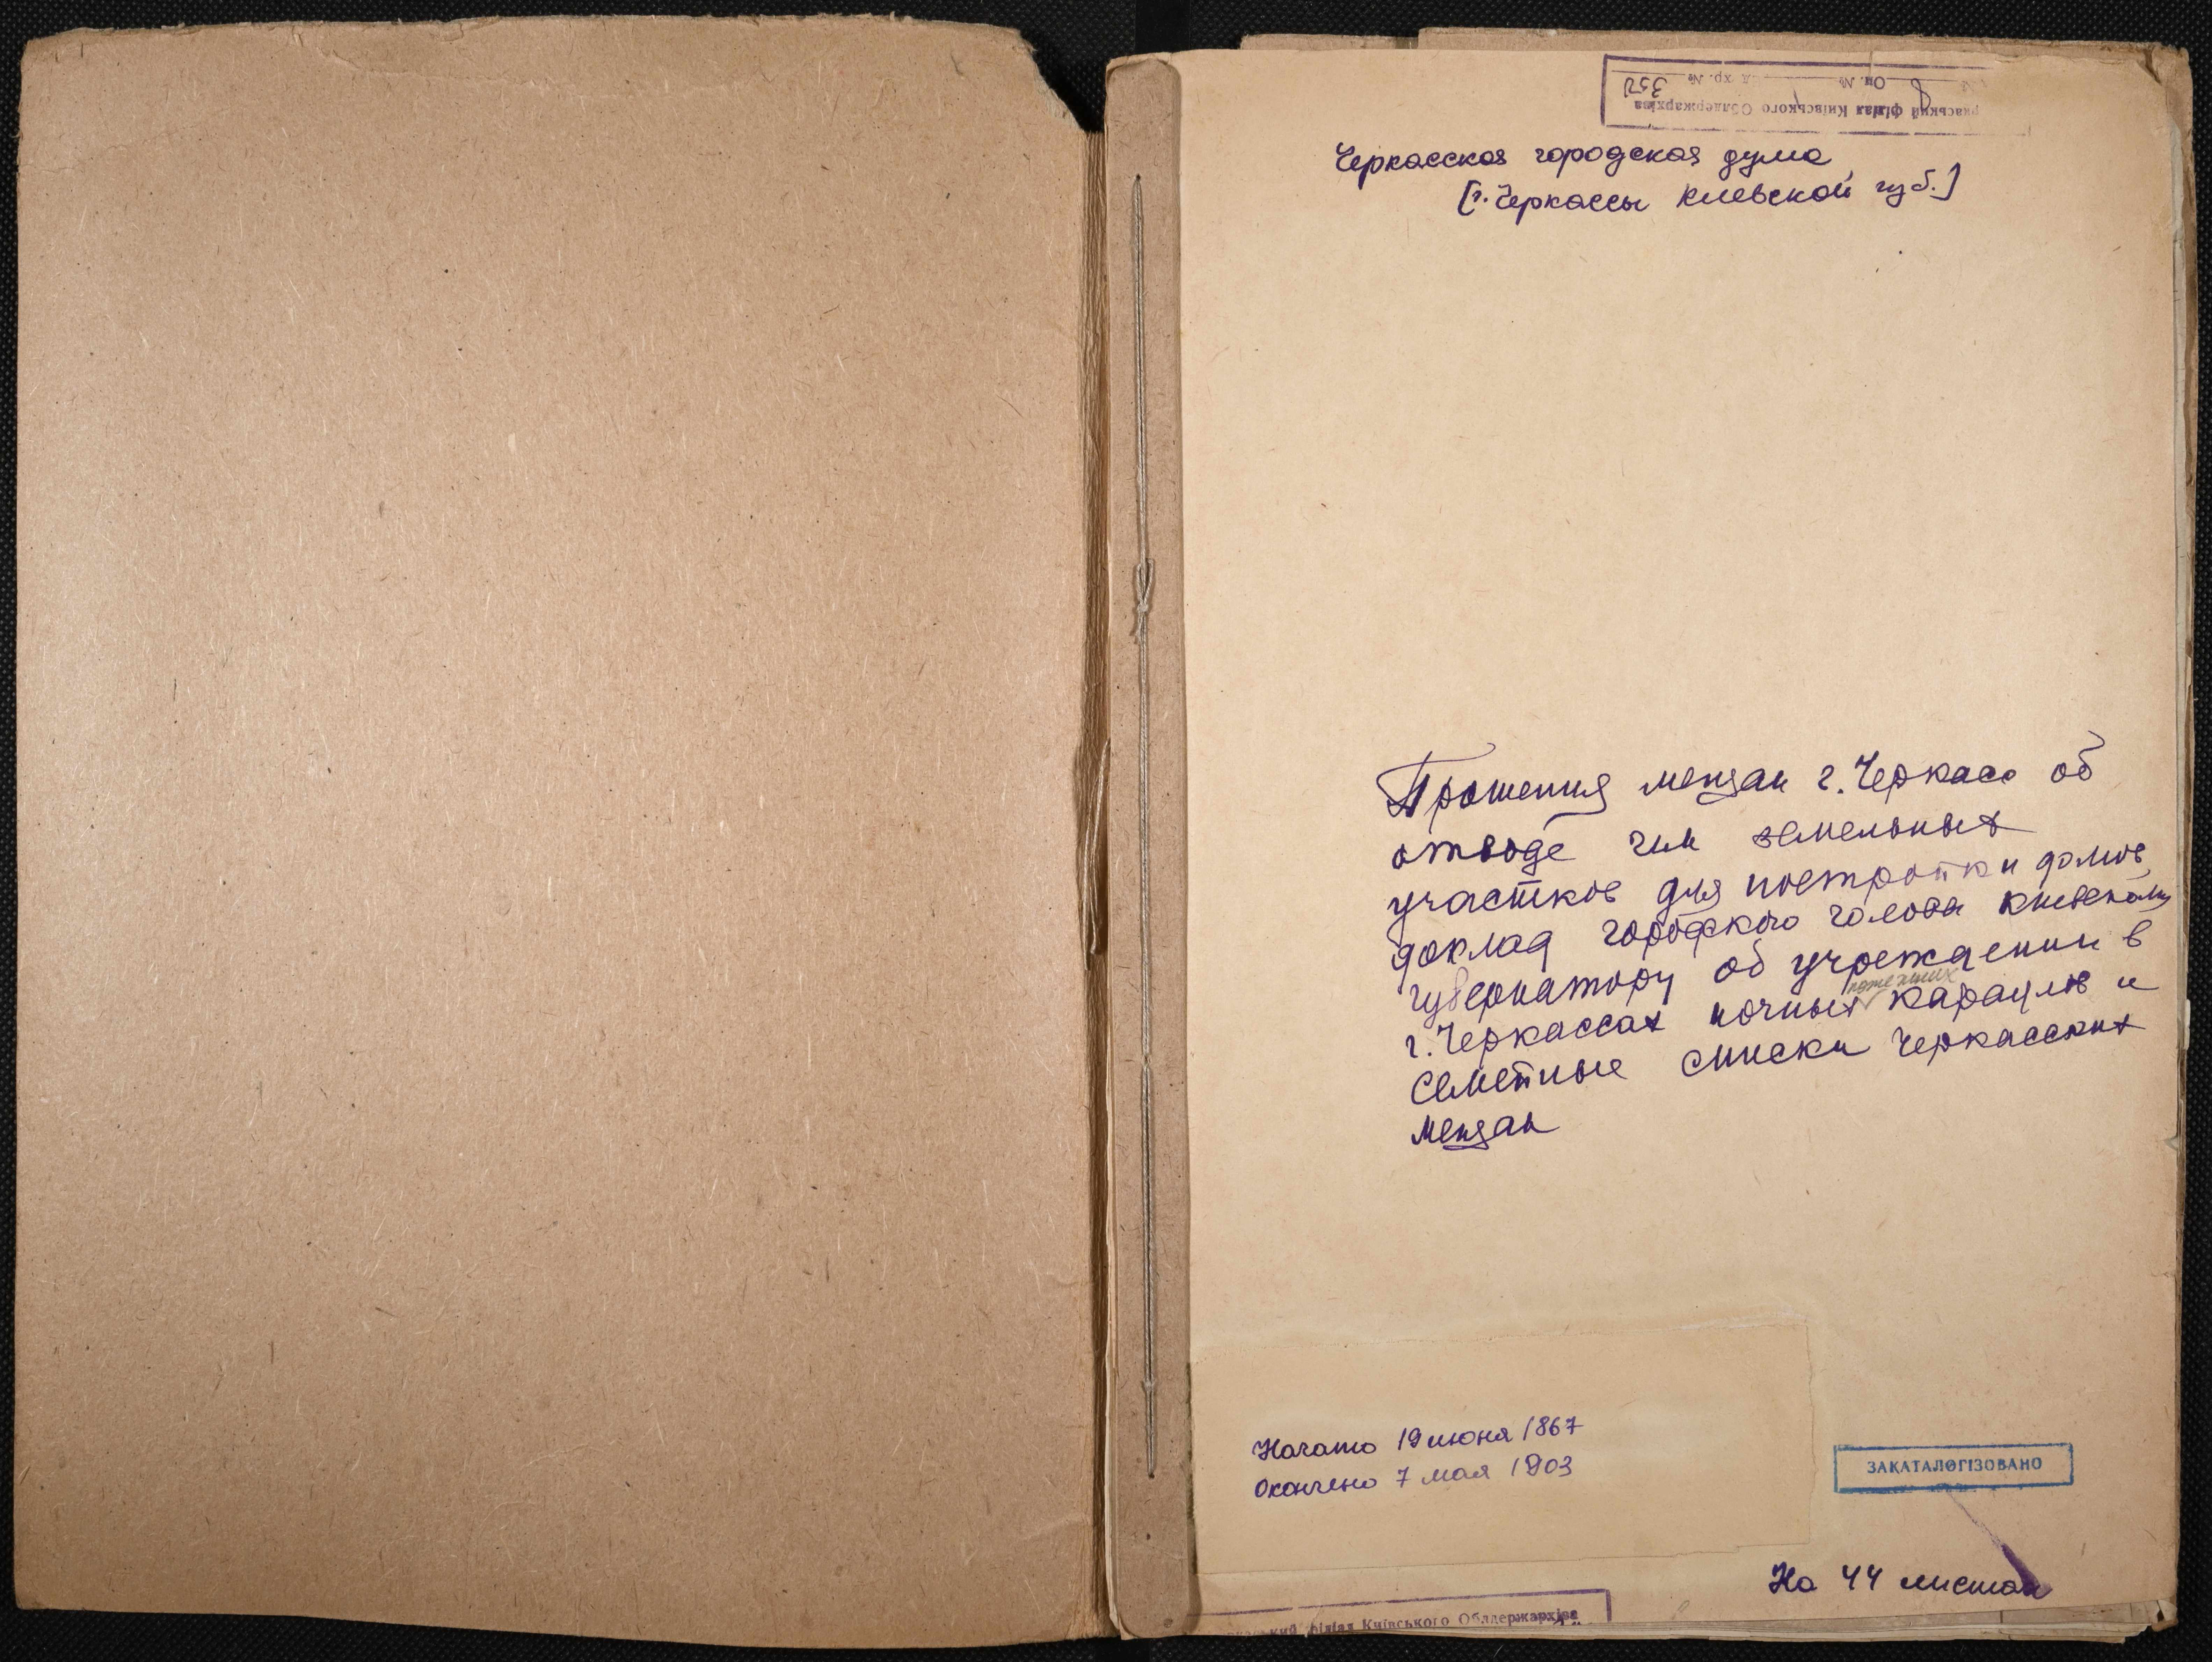 філіал Київського Облдержархіва
Оп. № хр. №
Черкасская городская дума
[г. Черкассы Киевской губ.]
Прошения мещан г. Черкасс об
отводе им земельных
участков для постройки домов,
доклад городского головы киевскому
губернатору об учреждении в
г. Черкассах ночных пожежных караулов и
семейные списки черкасских
мещан
Начато 19 июня 1867
Окончено 7 мая 1903
ЗАКАТАЛОГІЗОВАНО
На 44 листах
філіал Київського Облдержархіва